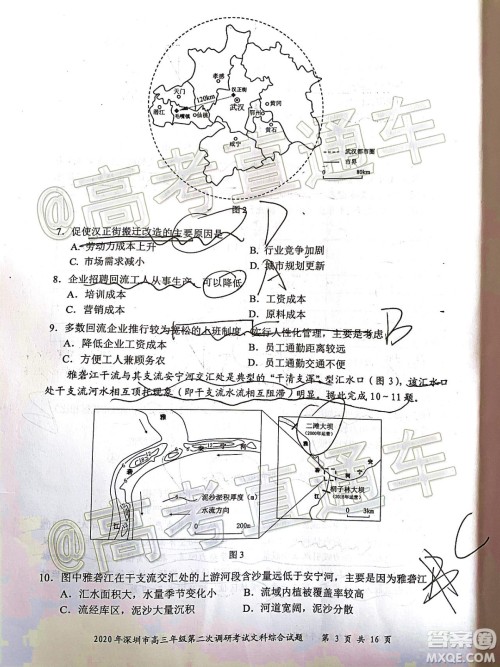 孝感
天门
汉正街
120km
武汉
黄冈
潜江
毛嘴镇
仙桃
黄石
咸宁
武汉都市圈
市界
0 80km
图2
7. 促使汉正街搬迁改造的主要原因是
A. 劳动力成本上升 B. 行业竞争加剧
C. 市场需求减小 D. 城市规划更新
8. 企业招聘回流工人从事生产，可以降低
A. 培训成本 B. 工资成本
C. 营销成本 D. 原料成本
9. 多数回流企业推行较为宽松的上班制度，实行人性化管理，主要是考虑
A. 降低企业工资成本 B. 员工通勤距离较远
C. 方便工人兼顾务农 D. 员工通勤交通不便
雅砻江干流与其支流安宁河交汇处是典型的“干清支浑”型汇水口（图3），该汇水口
处干支流河水相互顶托现象（即干支流水流相互阻滞）明显。据此完成10～11题。
雅
砻
江
安 宁 河
泥沙淤积厚度（m）
水流方向
0 200m
二滩大坝
（2000年运营）
雅
砻
江
安
宁
河
桐子林大坝
（2015年运营）
0 3km
图3
10. 图中雅砻江在干支流交汇处的上游河段含沙量远低于安宁河，主要是因为雅砻江
A. 汇水面积大，水量季节变化小 B. 流域内植被覆盖率较高
C. 流经库区，泥沙大量沉积 D. 河道宽阔，泥沙分散
2020年深圳市高三年级第二次调研考试文科综合试题 第 3 页 共 16 页
D
A
B
C
@高考直通车
@高考直通车
作业帮